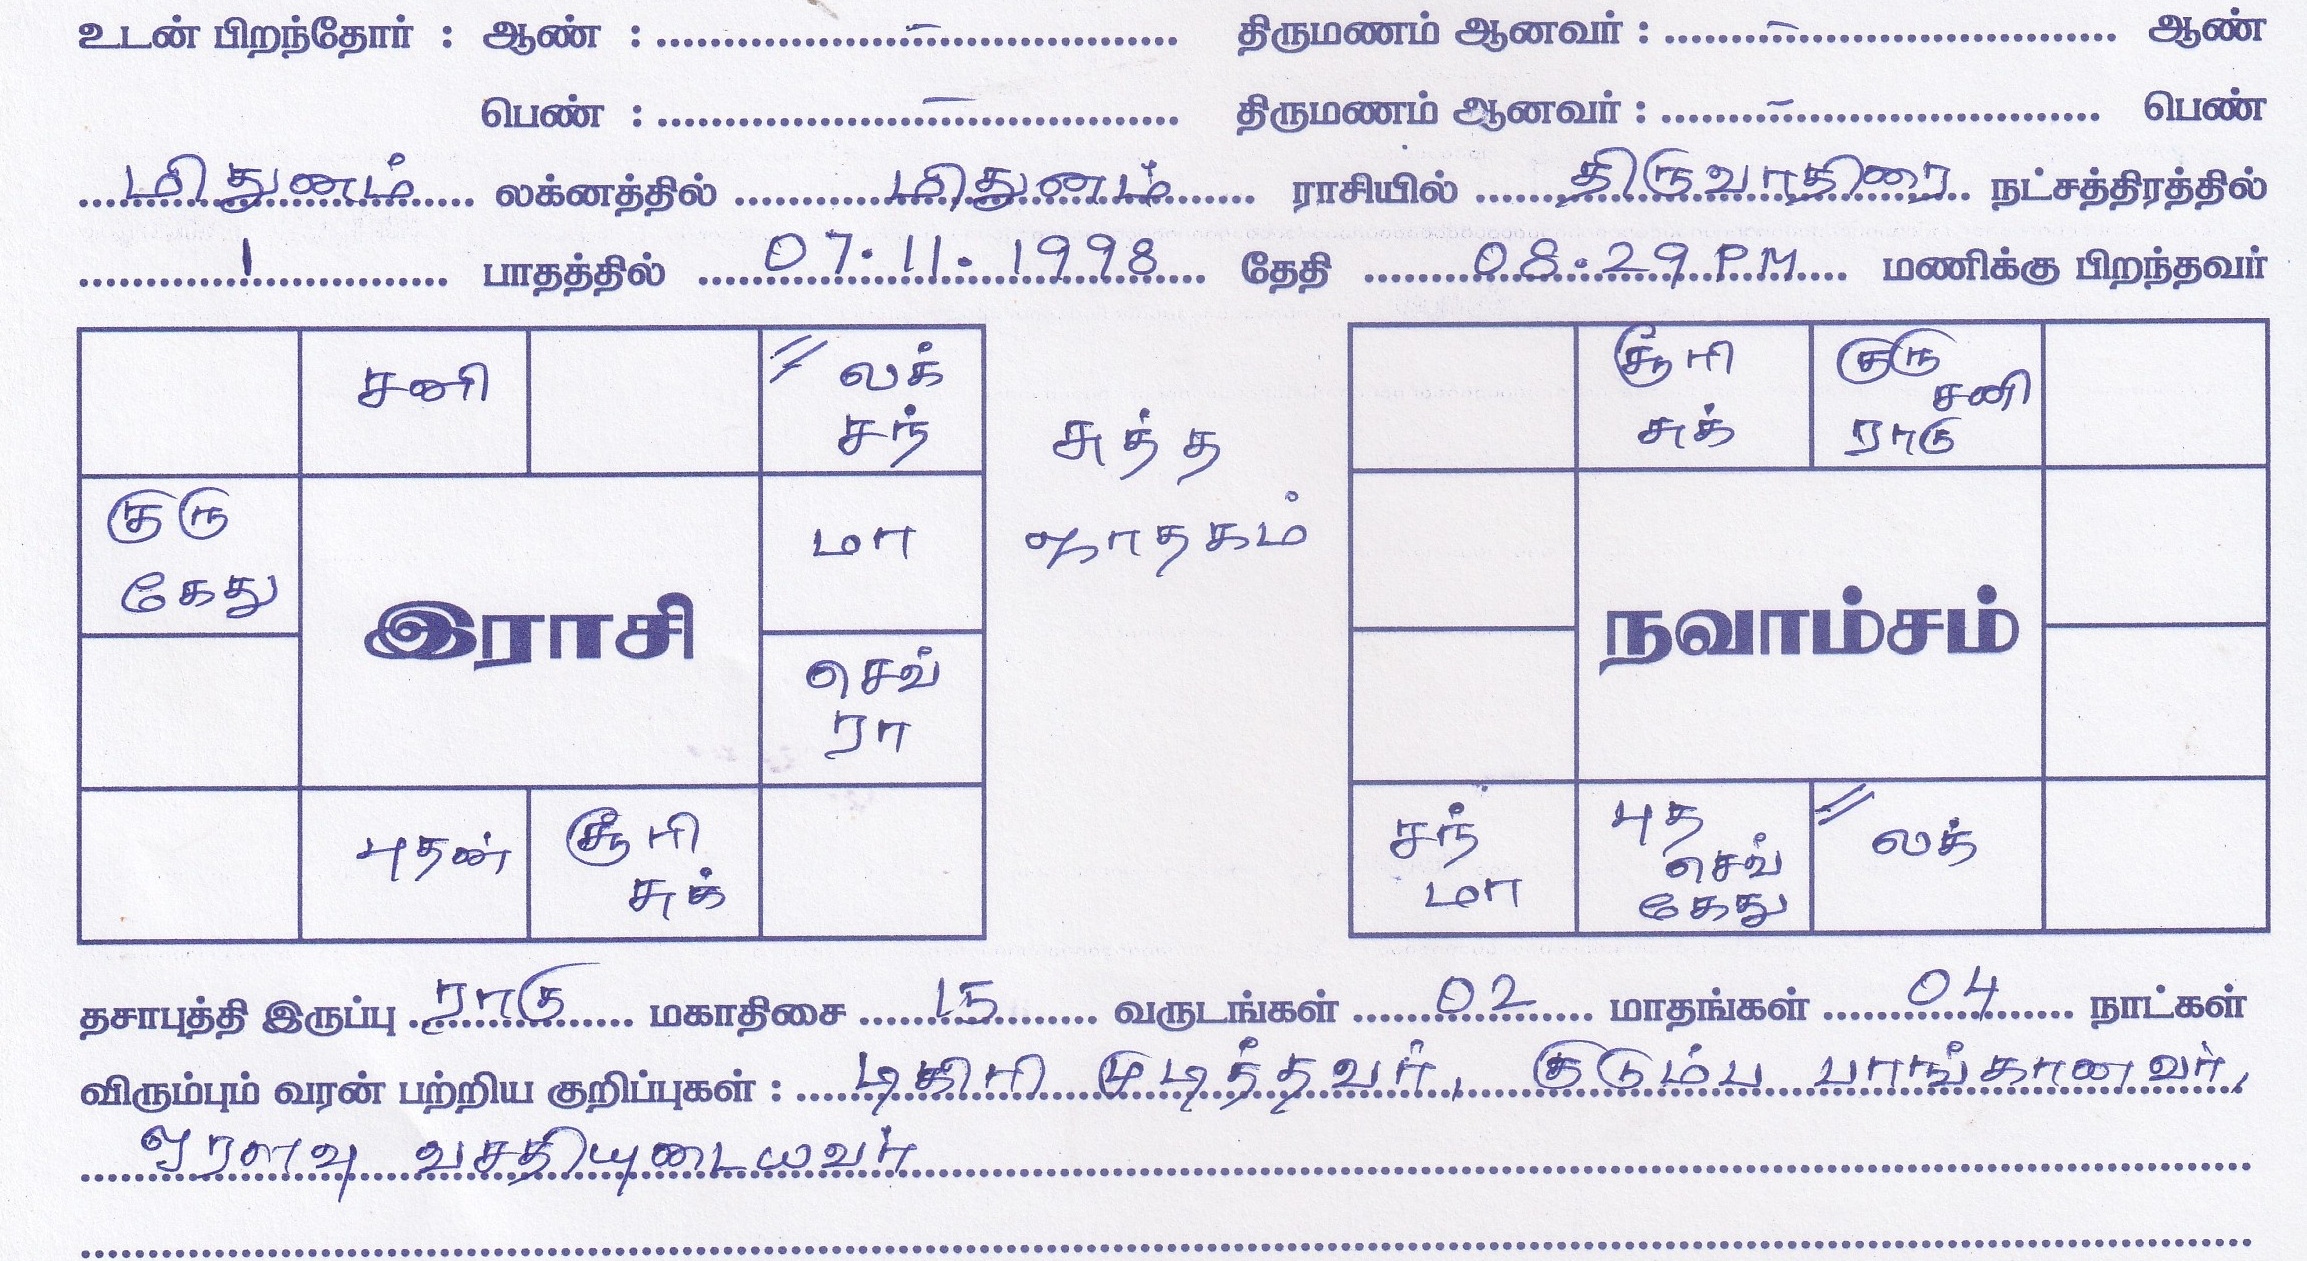 உடன் பிறந்தோர் : ஆண் : – திருமணம் ஆனவர் : – ஆண்
பெண் : – திருமணம் ஆனவர் : – பெண்
மிதுனம் லக்னத்தில் மிதுனம் ராசியில் திருவாதிரை நட்சத்திரத்தில்
1 பாதத்தில் 07.11.1998 தேதி 08.29 PM மணிக்கு பிறந்தவர்
சனி
லக்
சந்
குரு
கேது
இராசி
மா
செவ்
ரா
புதன்
சூரி
சுக்
சுத்த
ஜாதகம்
சூரி
சுக்
குரு
சனி
ராகு
நவாம்சம்
சந்
மா
புத
செவ்
கேது
லக்
தசாபுத்தி இருப்பு ராகு மகாதிசை 15 வருடங்கள் 02 மாதங்கள் 04 நாட்கள்
விரும்பும் வரன் பற்றிய குறிப்புகள் : டிகிரி முடித்தவர், குடும்ப பாங்கானவர்,
ஓரளவு வசதியுடையவர்